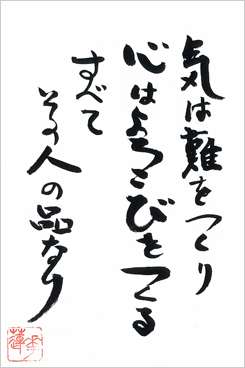 気は難をつくり
心はよろこびをつくる
すべて
その人の品なり